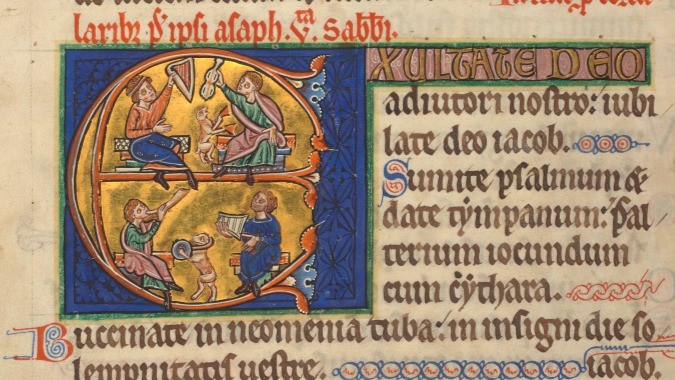 laribꝫ P̄ ipsi asaph. v̄. Sabb̄i.
EXULTATE DEO
adiutori nostro: iubi
late deo iacob.
Sumite psalmum &
date tẏmpanum: Psal
terium iocundum
cum cẏthara.
Buccinate in neomenia tuba: in insigni die so
lempnitatis uestre. iacob.